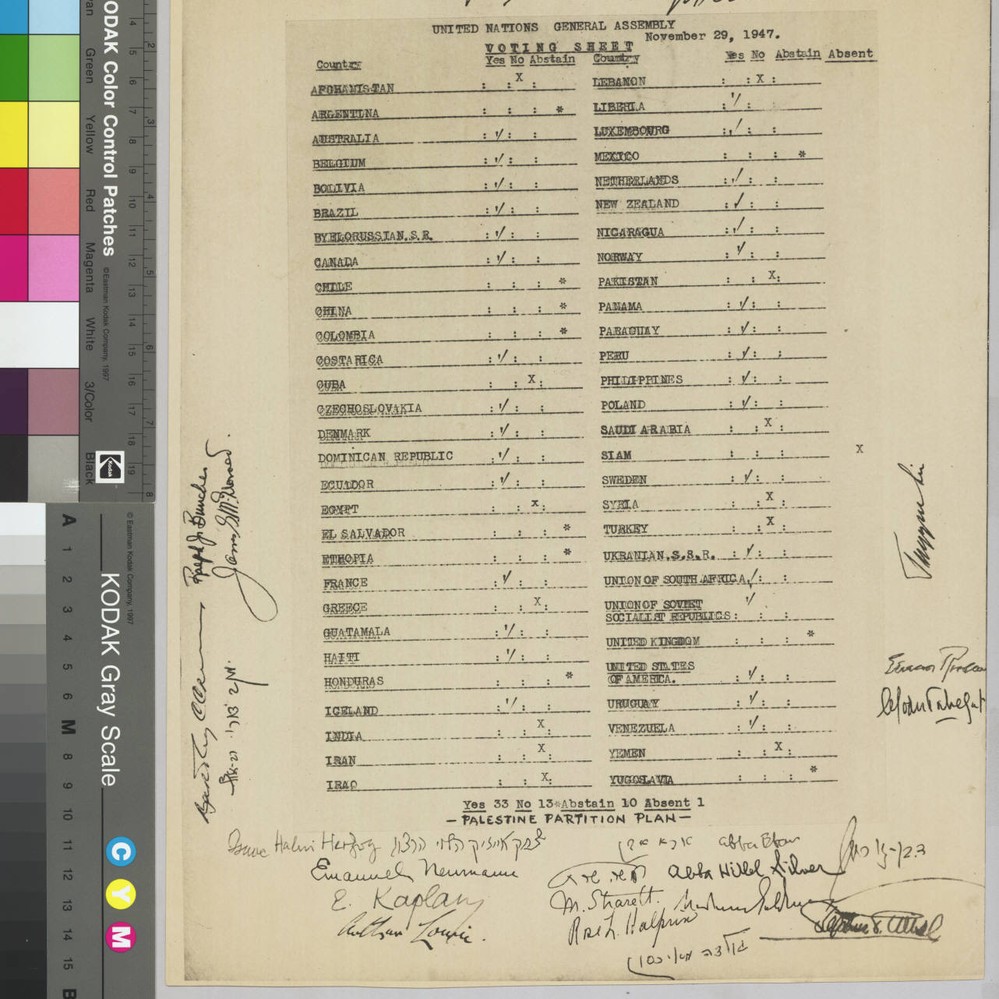 UNITED NATIONS GENERAL ASSEMBLY
November 29, 1947.
VOTING SHEET
Country Yes No Abstain
AFGHANISTAN : X :
ARGENTINA : : : *
AUSTRALIA : ✓ : :
BELGIUM : ✓ : :
BOLIVIA : ✓ : :
BRAZIL : ✓ : :
BYELORUSSIAN.S.R. : ✓ : :
CANADA : ✓ : :
CHILE : : : *
CHINA : : : *
COLOMBIA : : : *
COSTARICA : ✓ : :
CUBA : : X :
CZECHOSLOVAKIA : ✓ : :
DENMARK : ✓ : :
DOMINICAN REPUBLIC : ✓ : :
ECUADOR : ✓ : :
EGYPT : : X :
EL SALVADOR : : : *
ETHOPIA : : : *
FRANCE : ✓ : :
GREECE : : X :
GUATAMALA : ✓ : :
HAITI : ✓ : :
HONDURAS : : : *
ICELAND : ✓ : :
INDIA : : X :
IRAN : : X :
IRAQ : : X :
Country Yes No Abstain Absent
LEBANON : : X :
LIBERIA : ✓ :
LUXEMBOURG : ✓ : :
MEXICO : : : *
NETHERLANDS : ✓ : :
NEW ZEALAND : ✓ : :
NICARAGUA : ✓ : :
NORWAY : ✓ : :
PAKISTAN : : X :
PANAMA : ✓ : :
PARAGUAY : ✓ : :
PERU : ✓ : :
PHILIPPINES : ✓ : :
POLAND : ✓ : :
SAUDI ARABIA : : X :
SIAM : : : X
SWEDEN : ✓ : :
SYRIA : : X :
TURKEY : : X :
UKRANIAN.S.S.R. : ✓ : :
UNION OF SOUTH AFRICA ✓ : :
UNION OF SOVIET
SOCIALIST REPUBLICS : ✓ : :
UNITED KINGDOM : : : *
UNITED STATES
OF AMERICA. : ✓ : :
URUGUAY : ✓ : :
VENEZUELA : ✓ : :
YEMEN : : X :
YUGOSLAVIA : : : *
Yes 33 No 13 Abstain 10 Absent 1
— PALESTINE PARTITION PLAN —
Isaac Halevi Herzog יצחק אייזיק הלוי הרצוג
Emanuel Neumann
E. Kaplan
Arthur Lourie.
אבא אבן Abba Eban
משה שרת Abba Hillel Silver
M. Sharett.
Rose L. Halprin
גולדה מאירסון
KODAK Color Control Patches
©Eastman Kodak Company, 1997
Green Yellow Red Magenta White 3/Color Black
Kodak
KODAK Gray Scale
© Eastman Kodak Company, 1997
A 1 2 3 4 5 6 M 8 9 10 11 12 13 14 15 B
C
Y
M